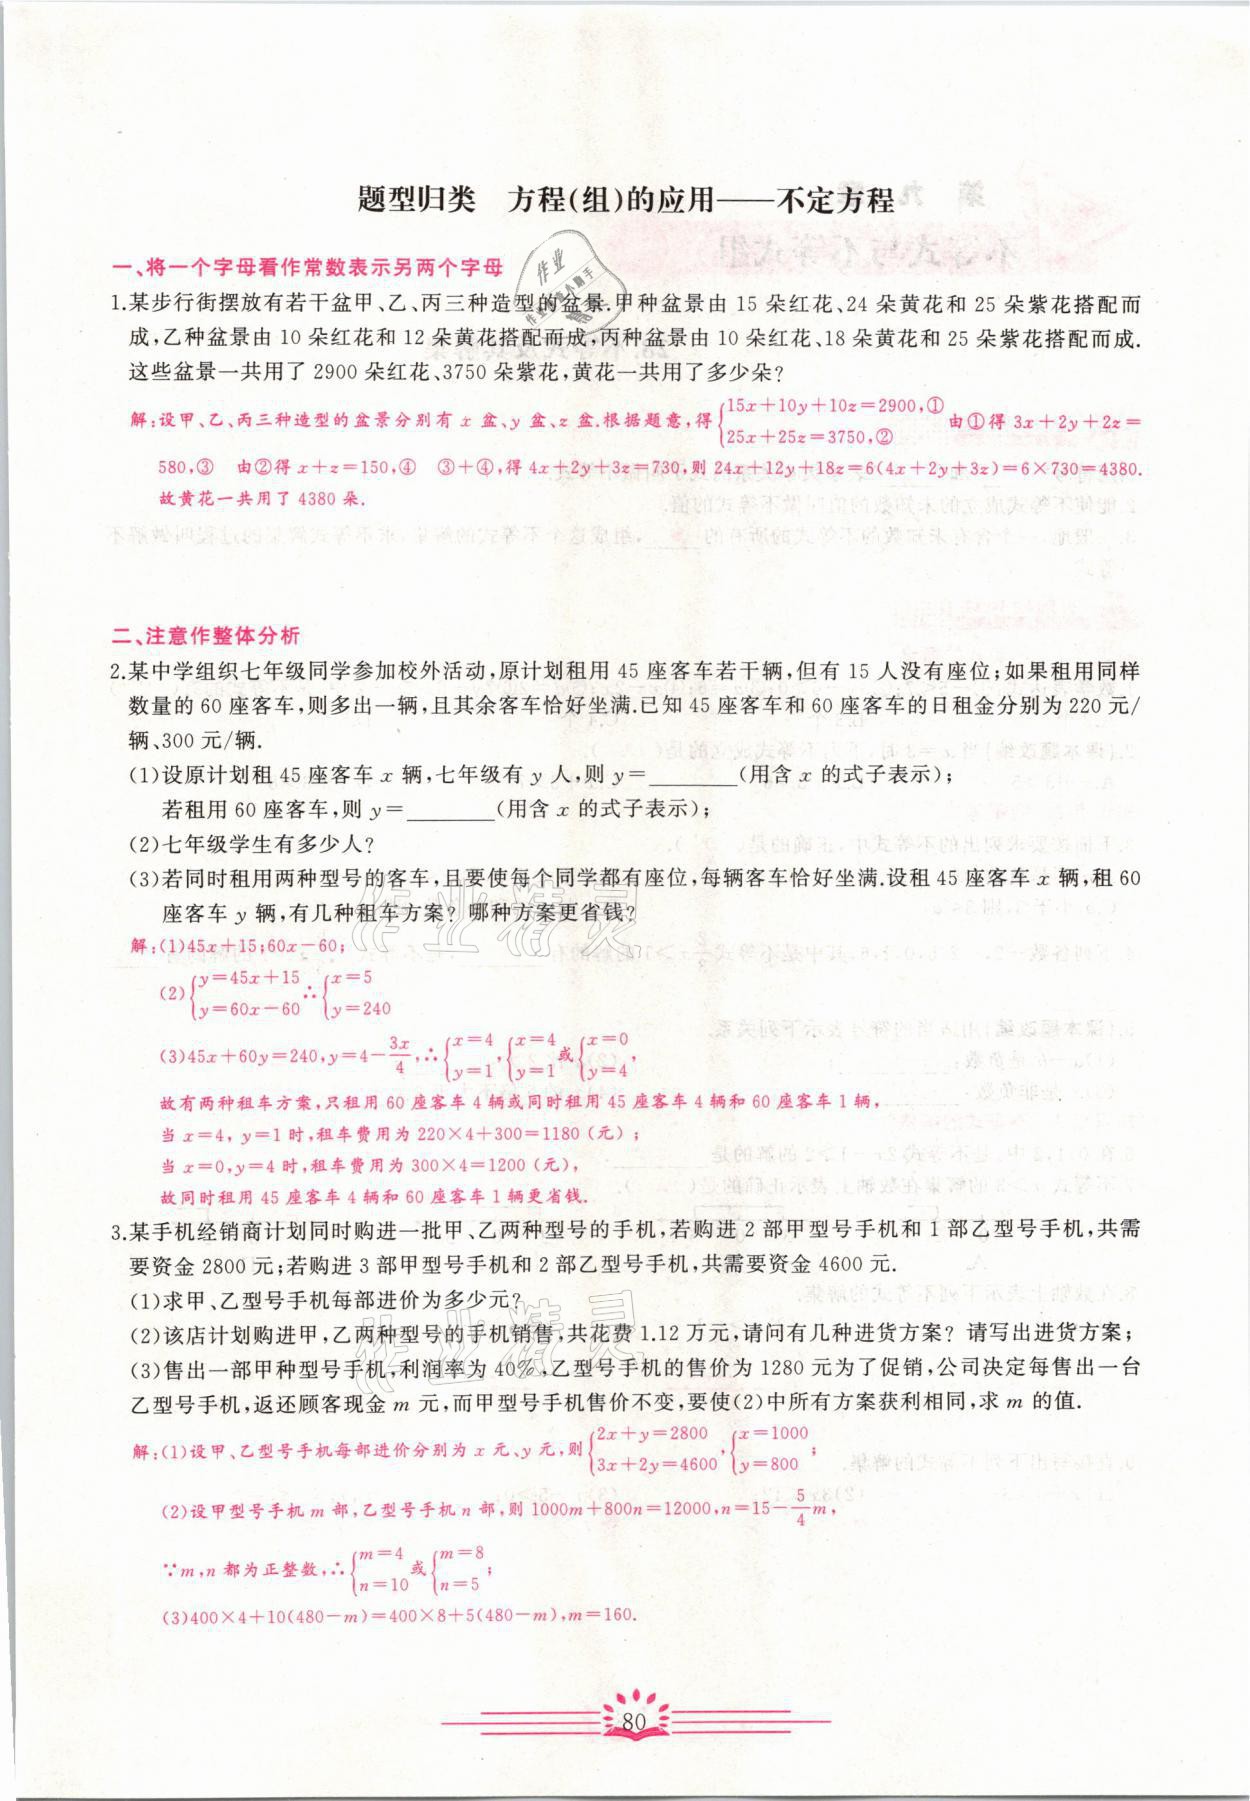 题型归类　方程(组)的应用——不定方程
一、将一个字母看作常数表示另两个字母
1.某步行街摆放有若干盆甲、乙、丙三种造型的盆景.甲种盆景由 15 朵红花、24 朵黄花和 25 朵紫花搭配而
成,乙种盆景由 10 朵红花和 12 朵黄花搭配而成,丙种盆景由 10 朵红花、18 朵黄花和 25 朵紫花搭配而成.
这些盆景一共用了 2900 朵红花、3750 朵紫花,黄花一共用了多少朵?
解:设甲、乙、丙三种造型的盆景分别有 x 盆、y 盆、z 盆.根据题意,得{15x+10y+10z=2900,① 25x+25z=3750,② 由①得 3x+2y+2z=
580,③　由②得 x+z=150,④　③+④,得 4x+2y+3z=730,则 24x+12y+18z=6(4x+2y+3z)=6×730=4380.
故黄花一共用了 4380 朵.
二、注意作整体分析
2.某中学组织七年级同学参加校外活动,原计划租用 45 座客车若干辆,但有 15 人没有座位;如果租用同样
数量的 60 座客车,则多出一辆,且其余客车恰好坐满.已知 45 座客车和 60 座客车的日租金分别为 220 元/
辆、300 元/辆.
(1)设原计划租 45 座客车 x 辆,七年级有 y 人,则 y=________(用含 x 的式子表示);
若租用 60 座客车,则 y=________(用含 x 的式子表示);
(2)七年级学生有多少人?
(3)若同时租用两种型号的客车,且要使每个同学都有座位,每辆客车恰好坐满.设租 45 座客车 x 辆,租 60
座客车 y 辆,有几种租车方案? 哪种方案更省钱?
解:(1)45x+15;60x-60;
(2){y=45x+15 y=60x-60 ∴{x=5 y=240
(3)45x+60y=240,y=4-3x/4,∴{x=4 y=1,{x=4 y=1 或{x=0 y=4,
故有两种租车方案,只租用 60 座客车 4 辆或同时租用 45 座客车 4 辆和 60 座客车 1 辆,
当 x=4, y=1 时,租车费用为 220×4+300=1180 (元);
当 x=0,y=4 时,租车费用为 300×4=1200 (元),
故同时租用 45 座客车 4 辆和 60 座客车 1 辆更省钱.
3.某手机经销商计划同时购进一批甲、乙两种型号的手机,若购进 2 部甲型号手机和 1 部乙型号手机,共需
要资金 2800 元;若购进 3 部甲型号手机和 2 部乙型号手机,共需要资金 4600 元.
(1)求甲、乙型号手机每部进价为多少元?
(2)该店计划购进甲,乙两种型号的手机销售,共花费 1.12 万元,请问有几种进货方案? 请写出进货方案;
(3)售出一部甲种型号手机,利润率为 40%,乙型号手机的售价为 1280 元为了促销,公司决定每售出一台
乙型号手机,返还顾客现金 m 元,而甲型号手机售价不变,要使(2)中所有方案获利相同,求 m 的值.
解:(1)设甲、乙型号手机每部进价分别为 x 元、y 元,则{2x+y=2800 3x+2y=4600,{x=1000 y=800;
(2)设甲型号手机 m 部,乙型号手机 n 部,则 1000m+800n=12000,n=15-5/4m,
∵m,n 都为正整数,∴{m=4 n=10 或{m=8 n=5;
(3)400×4+10(480-m)=400×8+5(480-m),m=160.
80
作业精灵
作业精灵